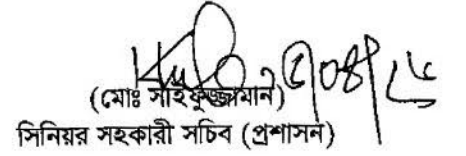 (মোঃ সাইফুজ্জামান)
সিনিয়র সহকারী সচিব (প্রশাসন)